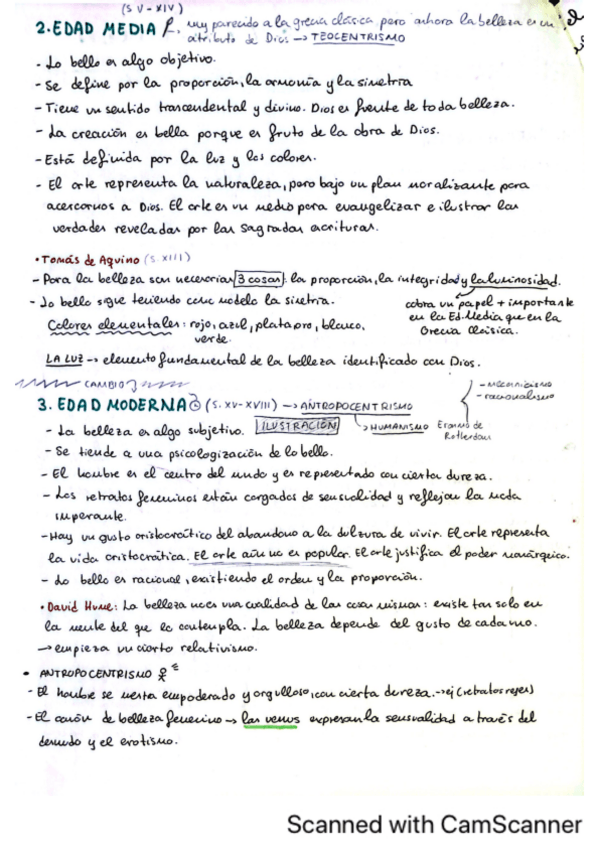 (S V - XIV)
2. EDAD MEDIA muy parecido a la grecia clásica pero ahora la belleza es un
atributo de Dios → TEOCENTRISMO
- Lo bello es algo objetivo.
- Se define por la proporción, la armonía y la simetría
- Tiene un sentido trascendental y divino. Dios es fuente de toda belleza.
- La creación es bella porque es fruto de la obra de Dios.
- Está definida por la luz y los colores.
- El arte representa la naturaleza, pero bajo un plan moralizante para
acercarnos a Dios. El arte es un medio para evangelizar e ilustrar las
verdades reveladas por las Sagradas escrituras.
• Tomás de Aquino (S. XIII)
- Para la belleza son necesarias 3 cosas: la proporción, la integridad y la luminosidad.
- Lo bello sigue teniendo como modelo la simetría.
cobra un papel + importante
en la Ed. Media que en la
Grecia Clásica.
Colores elementales: rojo, azul, plata, oro, blanco,
verde.
LA LUZ → elemento fundamental de la belleza identificado con Dios.
CAMBIO
- mecanicismo
- racionalismo
3. EDAD MODERNA (S. XV-XVIII) → ANTROPOCENTRISMO
- La belleza es algo subjetivo. ILUSTRACIÓN → HUMANISMO Erasmo de
Rotterdam
- Se tiende a una psicologización de lo bello.
- El hombre es el centro del mundo y es representado con cierta dureza.
- Los retratos femeninos están cargados de sensualidad y reflejan la moda
imperante.
- Hay un gusto aristocrático del abandono a la dulzura de vivir. El arte representa
la vida aristocrática. El arte aún no es popular. El arte justifica el poder monárquico.
- Lo bello es racional, existiendo el orden y la proporción.
• David Hume: La belleza no es una cualidad de las cosas mismas: existe tan solo en
la mente del que la contempla. La belleza depende del gusto de cada uno.
→ empieza un cierto relativismo.
• ANTROPOCENTRISMO
- El hombre se muestra empoderado y orgulloso, con cierta dureza. → ej (retratos reyes)
- El canon de belleza femenino → las venus expresan la sensualidad a través del
desnudo y el erotismo.
Scanned with CamScanner